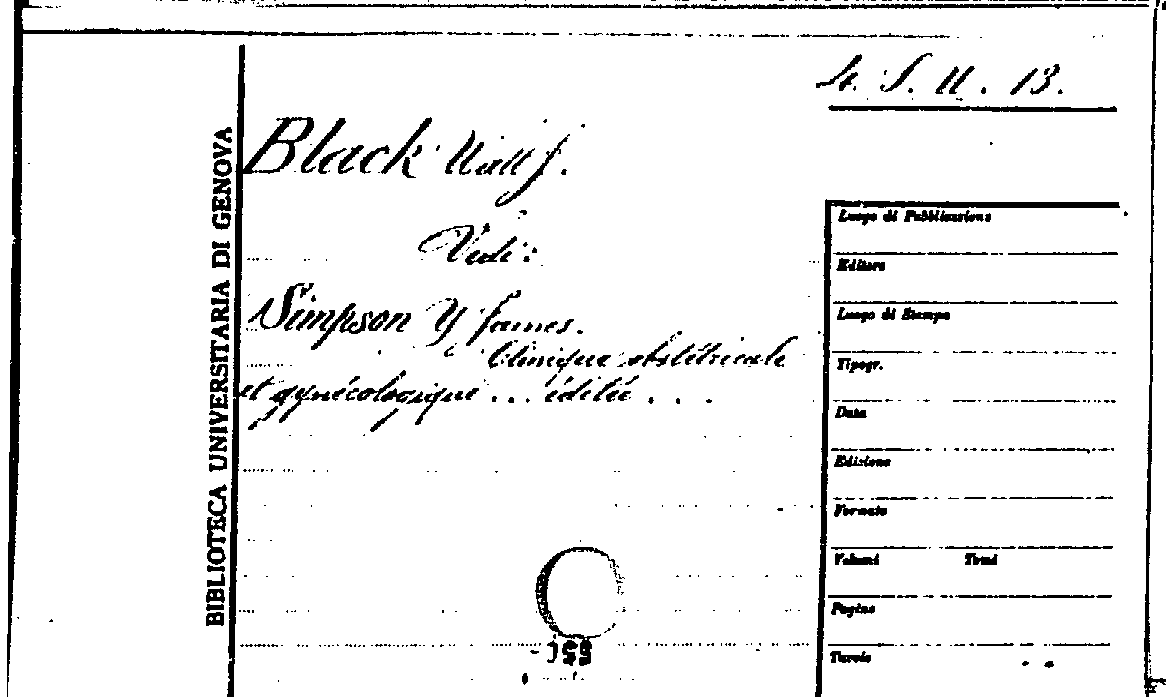 4. S. U. 13.
BIBLIOTECA UNIVERSITARIA DI GENOVA
Black Watt J.
Vedi:
Simpson Y James.
Clinique obstétricale
et gynécologique ... éditée ...
Luogo di Pubblicazione
Editore
Luogo di Stampa
Tipogr.
Data
Edizione
Formato
Volumi Tomi
Pagine
Tavole